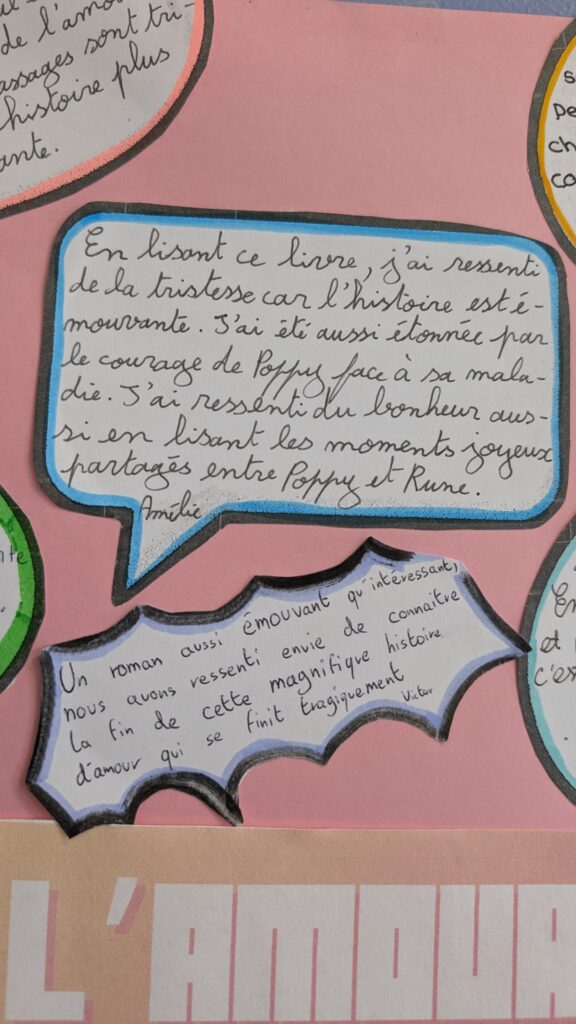 de l'amou
assages sont tri-
histoire plus
ante.
s
pe
ch
ca
En lisant ce livre, j'ai ressenti
de la tristesse car l'histoire est é-
mouvante. J'ai été aussi étonnée par
le courage de Poppy face à sa mala-
die. J'ai ressenti du bonheur aus-
si en lisant les moments joyeux
partagés entre Poppy et Rune.
Amélie
nte
Un roman aussi émouvant qu'intéressant,
nous avons ressenti envie de connaître
la fin de cette magnifique histoire
d'amour qui se finit tragiquement
Victor
En
et
c'es
L'AMOUR